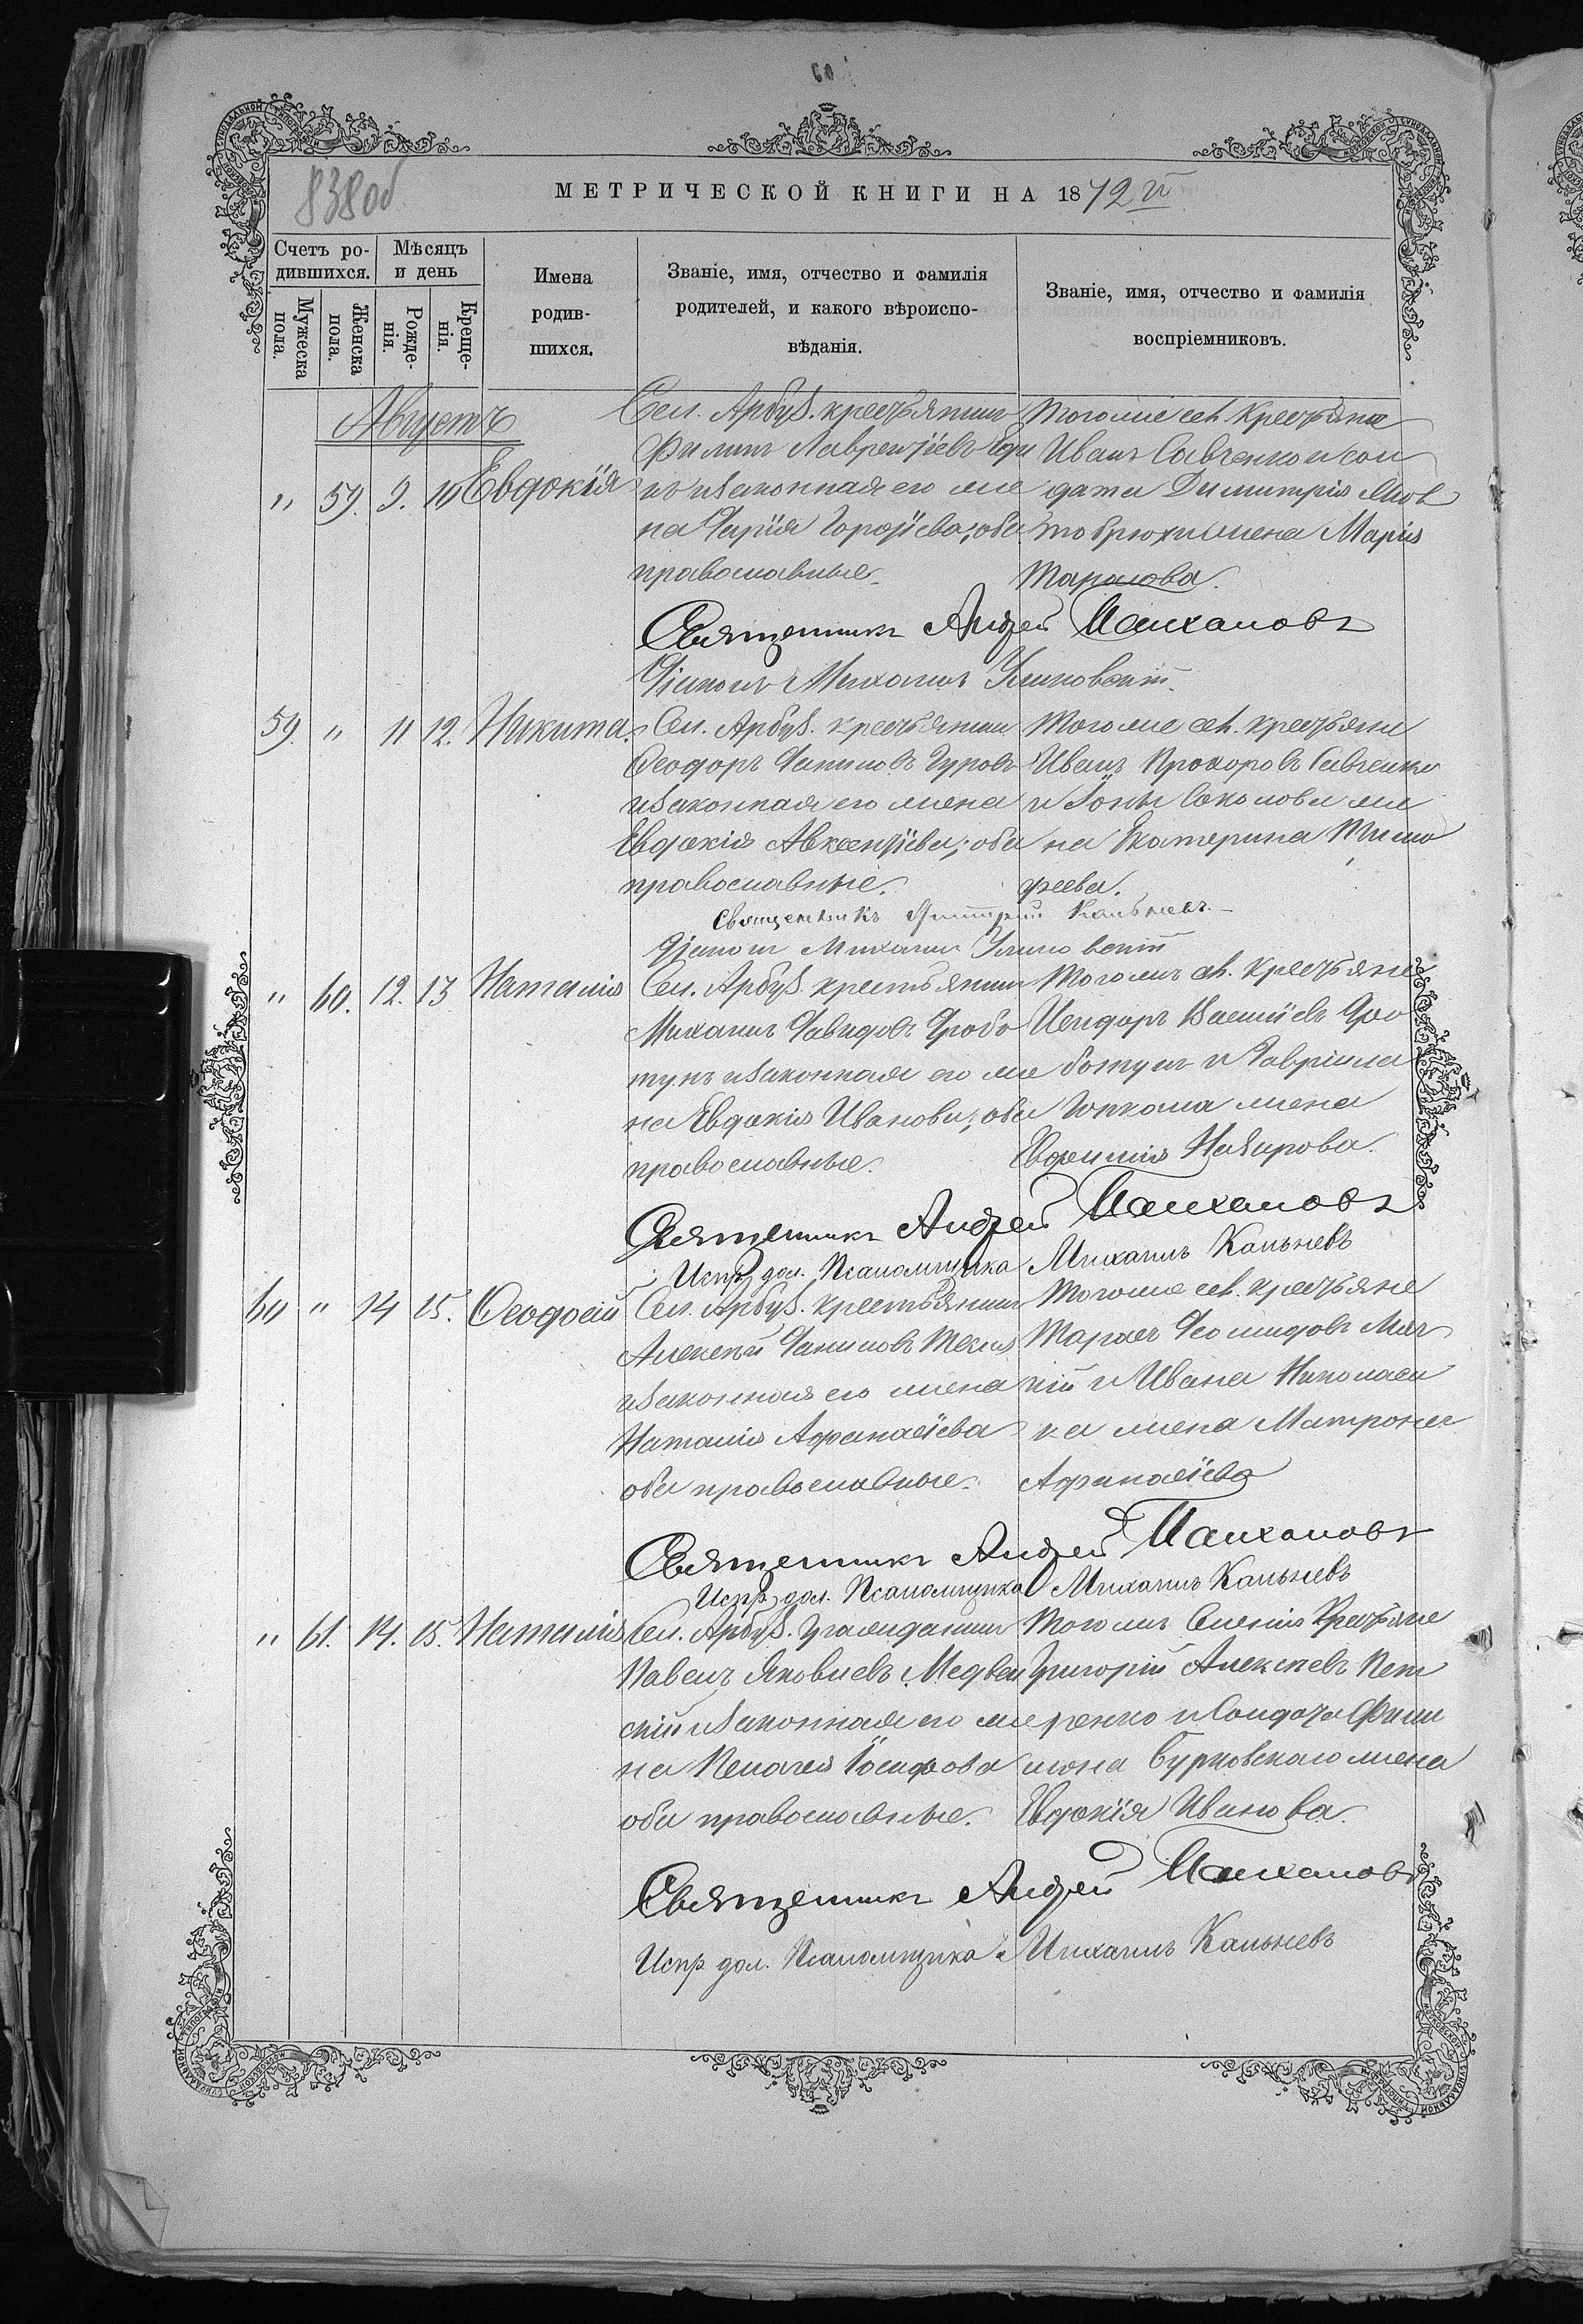 838об
МЕТРИЧЕСКОЙ КНИГИ НА 1872 й
Счетъ ро-
дившихся.
Мужеска
пола.
Женска
пола.
Мѣсяцъ
и день
Рожде-
нія.
Креще-
нія.
Имена
родив-
шихся.
Званіе, имя, отчество и фамилія
родителей, и какого вѣроиспо-
вѣданія.
Званіе, имя, отчество и фамилія
воспріемниковъ.
Августъ
" 59. 9. 10 Евдокія
Сел. Арбуз. крестьянинъ
Филипъ Лаврентіевъ
и законная его же
на Дарія; оба
православные.
Тогоже сел. Крестьяне
Иванъ Савченко и сол
дата Димитрія
жена Марія
Тарасова.
Священникъ Андрей
Діаконъ Михаилъ
59. " 11 12. Никита.
Сел. Арбуз. крестьянин
Ѳеодоръ Даниловъ Гуровъ
и законная его жена
Евдокія Авксентіева; оба
православные.
Тогоже сел. крестьяни
Иванъ Прохоровъ Савченко
и Іоны Соколова же
на Екатерина Тимо
ѳеева.
Священникъ Димитрій Кальневъ.
Діаконъ Михаилъ
" 60. 12. 13 Наталія
Сел. Арбуз. крестьянинъ
Михаилъ Давидовъ Дробо
тунъ и законная его же
на Евдокія Иванова; оба
православные.
Тогожъ сел. Крестьяне
Исидоръ Василіевъ Дро
ботунъ и Гавріила
жена
Евфимія Назарова.
Священникъ Андрей
Испр. дол. Псаломщика Михаилъ Кальневъ
60 " 14 15. Ѳеодосій
Сел. Арбуз. крестьянинъ
Алексѣй Даниловъ
и законная его жена
Наталія Афанасіева
оба православные.
Тогоже сел. крестьяне
Тарасъ
и Ивана Николаен
ка жена Матрона
Афанасіева
Священникъ Андрей
Испр. дол. Псаломщика Михаилъ Кальневъ
" 61. 14. 15. Наталія
Сел. Арбуз. гражданинъ
Павелъ Яковлевъ Медвен
скій и законная его же
на Пелагея Іосифова
оба православные.
Тогожъ Селенія Крестьяне
Григорій Алексѣевъ Пет
ренко и Солдата Фили
мона Бурковскаго жена
Евдокія Иванова.
Священникъ Андрей
Испр. дол. Псаломщика Михаилъ Кальневъ